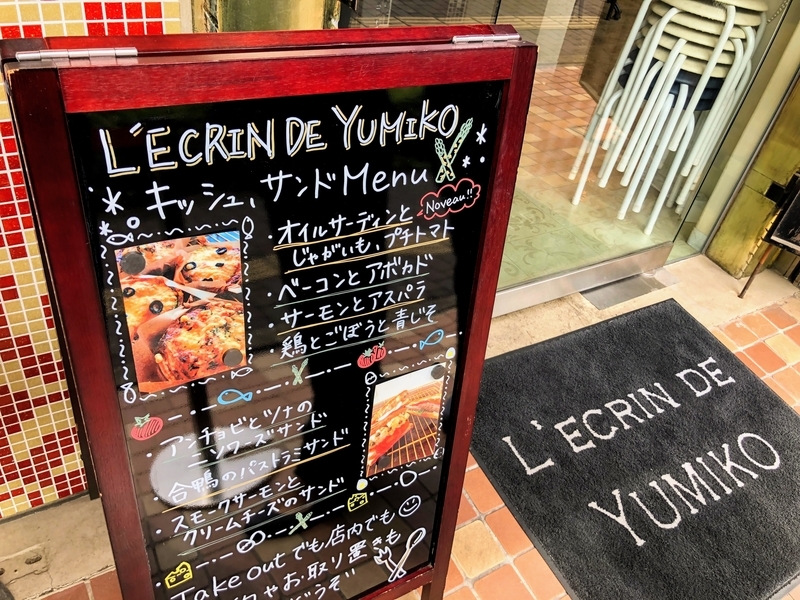 L'ECRIN DE YUMIKO
キッシュ、サンドMenu
Noveau!!
・オイルサーディンと
じゃがいも、プチトマト
・ベーコンとアボカド
・サーモンとアスパラ
・鶏とごぼうと青じそ
・アンチョビとツナの
ニソワーズサンド
・合鴨のパストラミサンド
・スモークサーモンと
クリームチーズのサンド
・Take outでも店内でも
やお取り置きも
どうぞ
L'ECRIN DE
YUMIKO